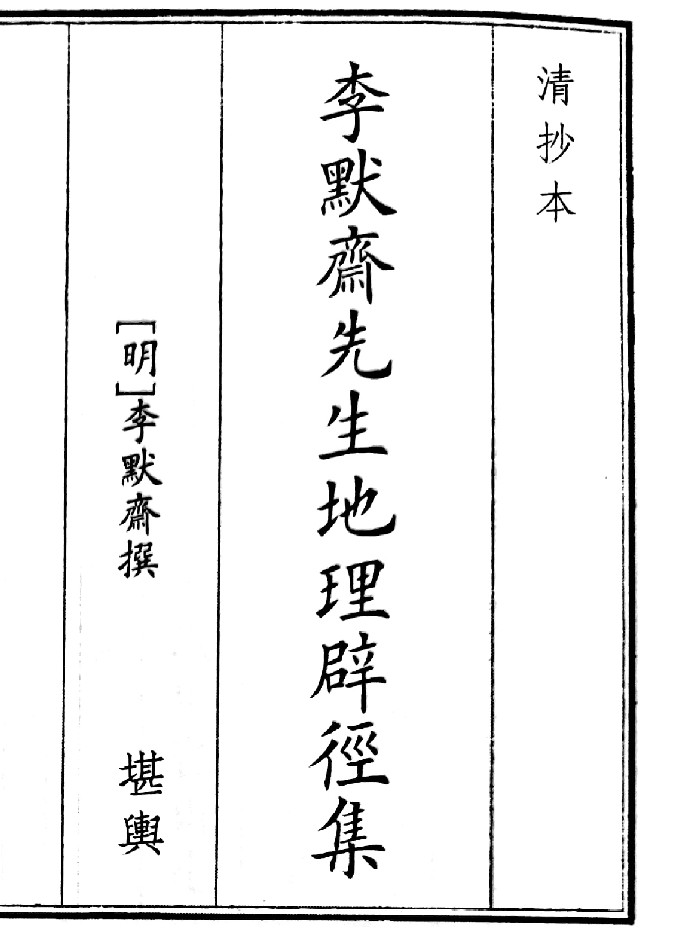 清抄本
李默齋先生地理辟徑集
[明]李默齋撰
堪輿